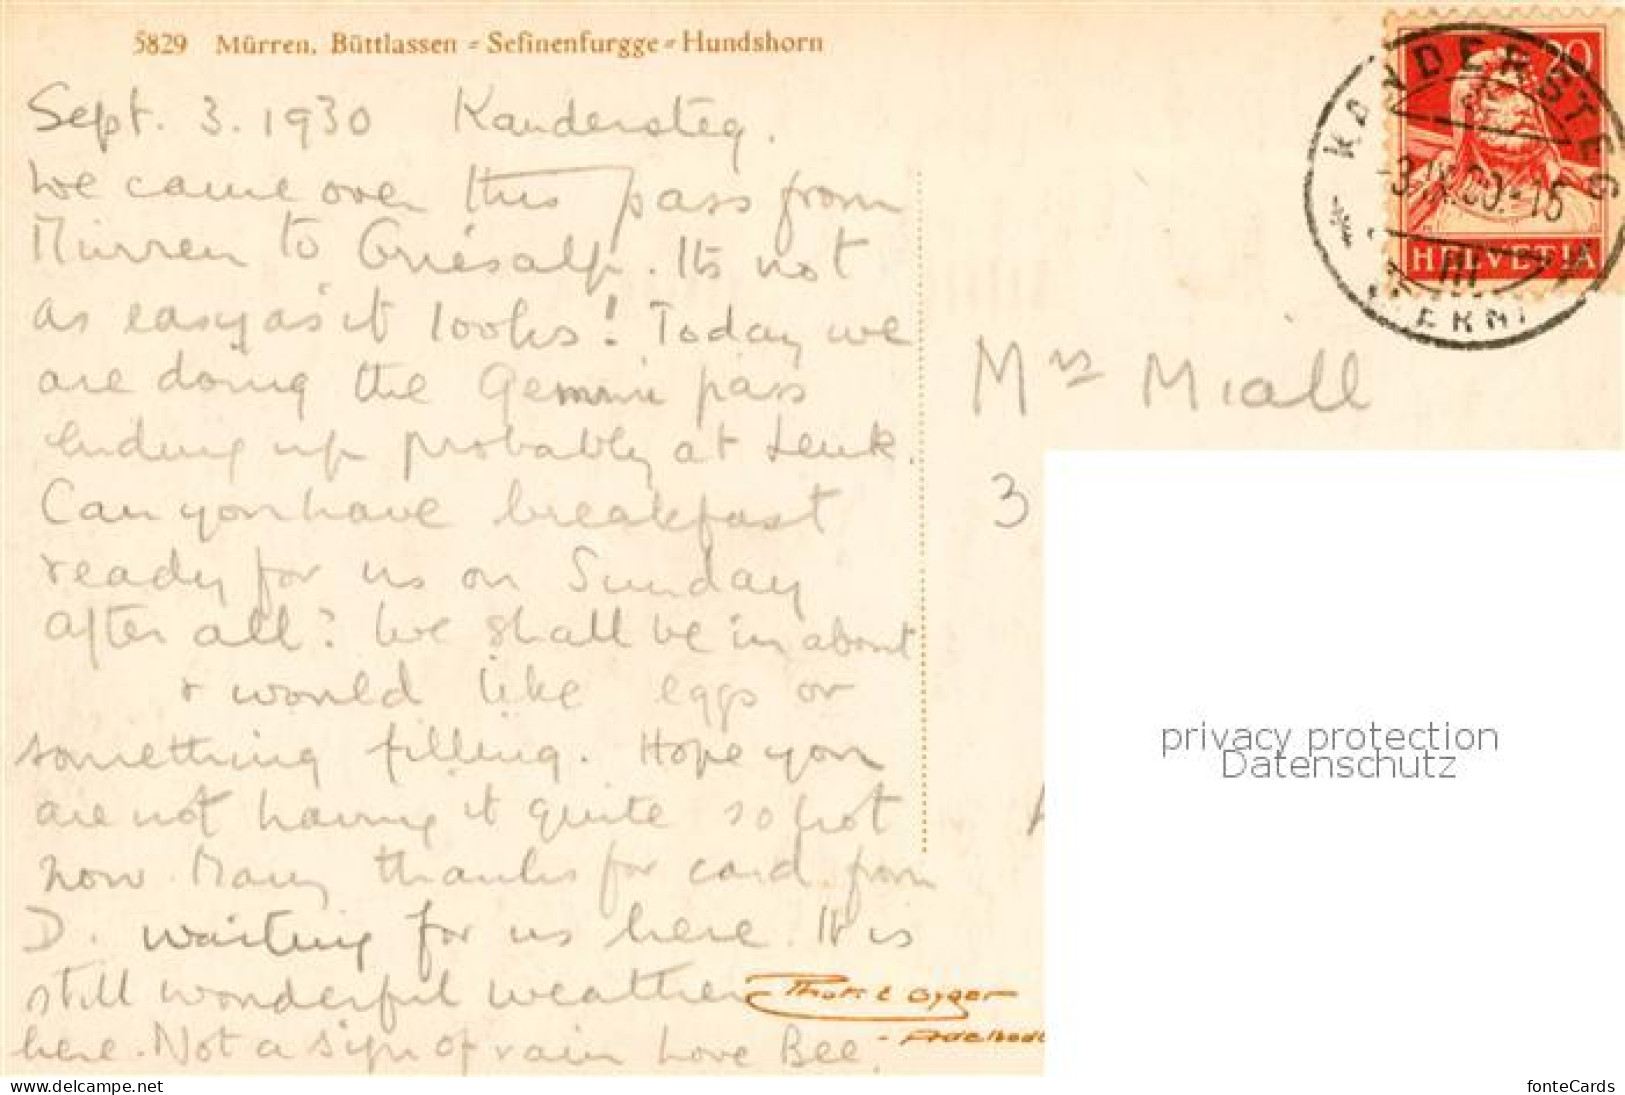 5829 Mürren, Büttlassen - Sefinenfurgge - Hundshorn
Sept. 3. 1930 Kandersteg.
We came over this pass from
Mürren to Griesalp. Its not
as easy as it looks! Today we
are doing the Gemmi pass
ending up probably at Leuk.
Can you have breakfast
ready for us on Sunday
after all? We shall be in about
& would like eggs or
something filling. Hope you
are not having it quite so hot
now. Many thanks for card from
D. waiting for us here. It is
still wonderful weather
here. Not a sign of rain Love Bee.
KANDERSTEG
HELVETIA
20
Mrs Miall
3
privacy protection
Datenschutz
Phot. E. Gyger
Adelbod
www.delcampe.net
fonteCards